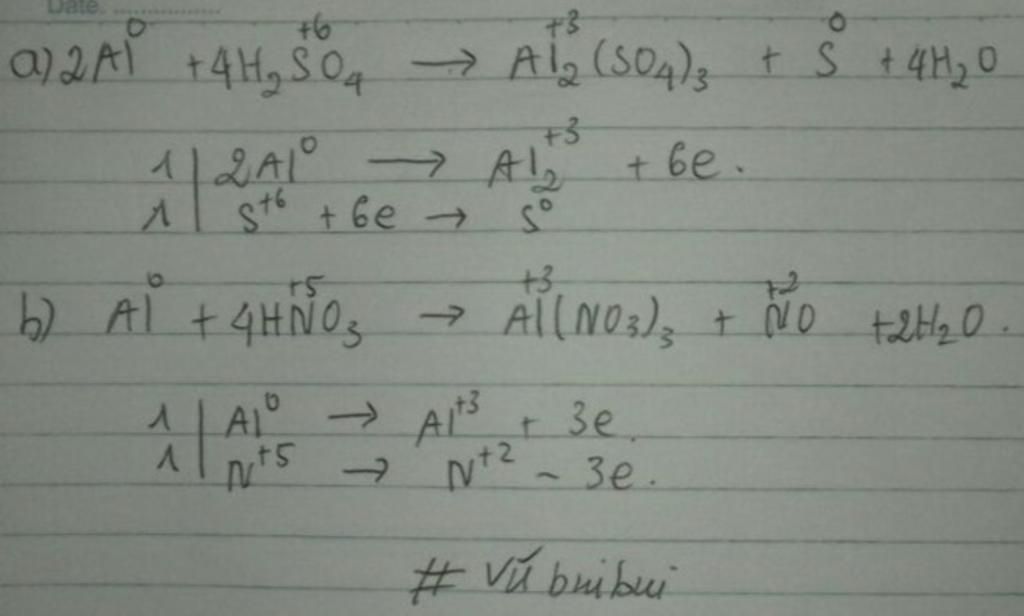 Date.
a) 2Al⁰ + 4H₂S⁺⁶O₄ → Al₂⁺³(SO₄)₃ + S⁰ + 4H₂O
1 | 2Al⁰ → Al₂⁺³ + 6e.
1 | S⁺⁶ + 6e → S⁰
b) Al⁰ + 4HN⁺⁵O₃ → Al⁺³(NO₃)₃ + N⁺²O + 2H₂O.
1 | Al⁰ → Al⁺³ + 3e.
1 | N⁺⁵ → N⁺² - 3e.
# Vũ buibui